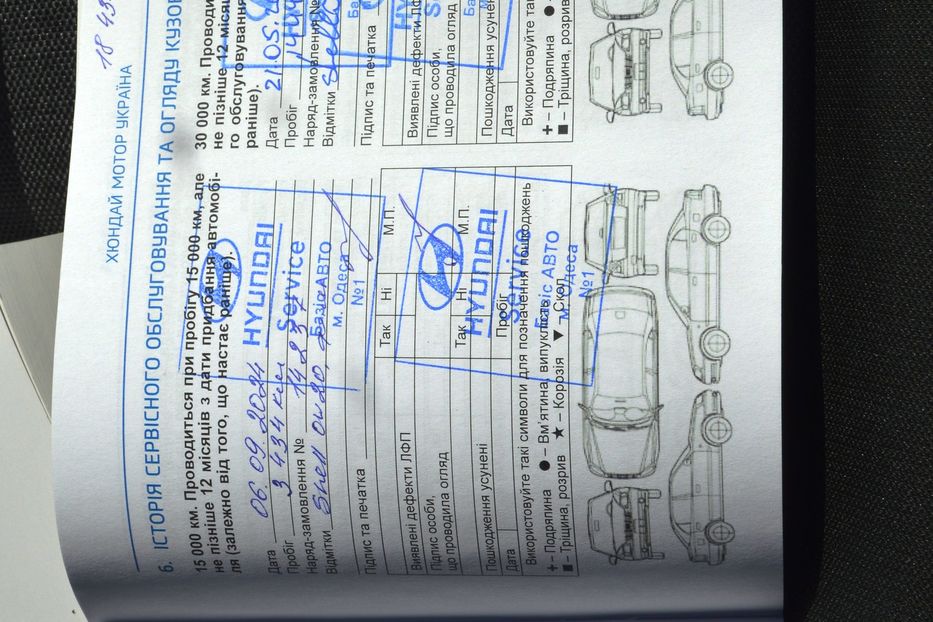 18 43
ХЮНДАЙ МОТОР УКРАЇНА
6. ІСТОРІЯ СЕРВІСНОГО ОБСЛУГОВУВАННЯ ТА ОГЛЯДУ КУЗОВ
15 000 км. Проводиться при пробігу 15 000 км, але
не пізніше 12 місяців з дати придбання автомобі-
ля (залежно від того, що настає раніше).
Дата 06.09.2024
Пробіг 3 434 км
Наряд-замовлення № 14 237
Відмітки Shell 0w20,
Підпис та печатка М.П.
HYUNDAI
Service
Базіс АВТО
м. Одеса
№1
Так Ні
Виявлені дефекти ЛФП
Підпис особи,
що проводила огляд М.П.
Так Ні
Пошкодження усунені
Дата Пробіг
HYUNDAI
Service
Базіс АВТО
м. Одеса
№1
Використовуйте такі символи для позначення пошкоджень
+ – Подряпина ● – Вм'ятина, випуклість
■ – Тріщина, розрив ★ – Корозія ▼ – Скол
30 000 км. Проводи
не пізніше 12 місяц
го обслуговування
раніше).
Дата 21.05.
Пробіг 1444
Наряд-замовлення №
Відмітки Shell
Підпис та печатка
HY
S
Ба
Виявлені дефекти ЛФП
Підпис особи,
що проводила огляд
Пошкодження усунені
Дата
Використовуйте такі
+ – Подряпина ● –
■ – Тріщина, розрив